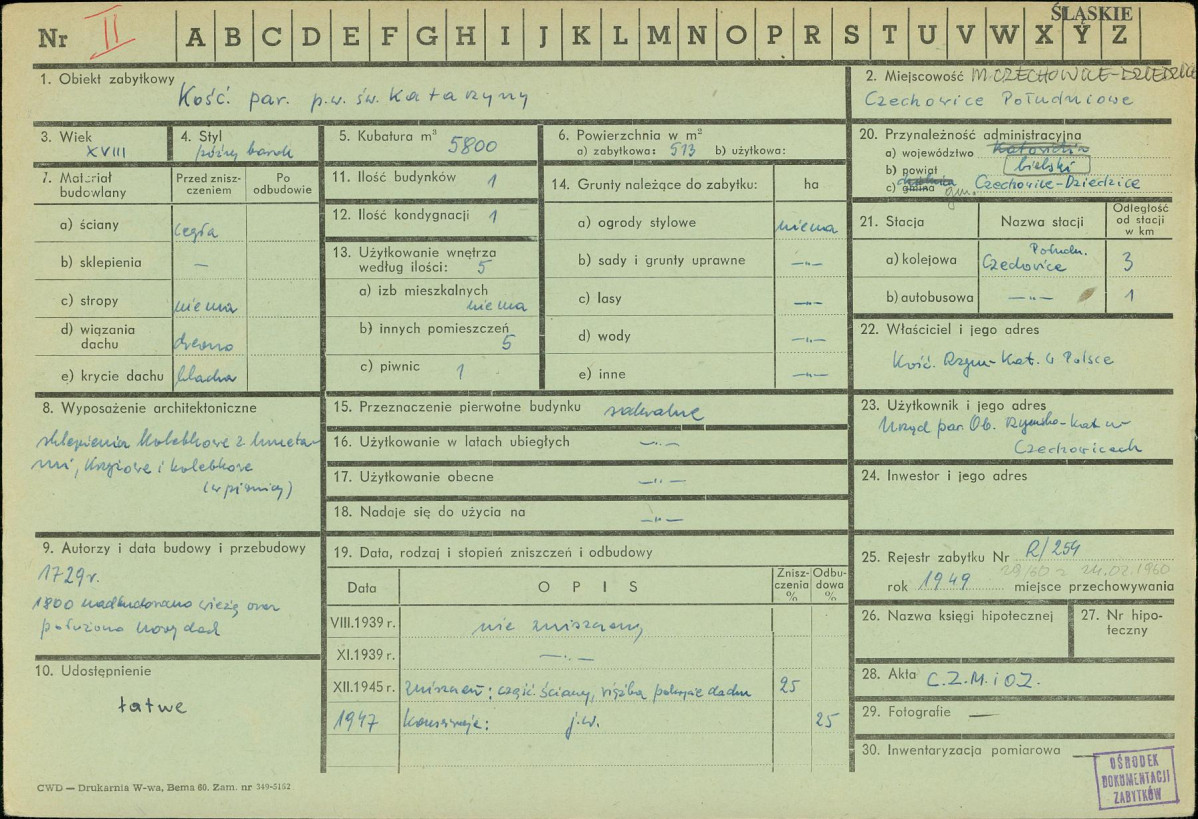 Nr II A B C D E F G H I J K L M N O P R S T U V W X Y Z
ŚLĄSKIE
1. Obiekt zabytkowy
Kość. par. p.w. św. Katarzyny
2. Miejscowość M. CZECHOWICE-DZIEDZICE
Czechowice Południowe
3. Wiek
XVIII
4. Styl
późny barok
5. Kubatura m³ 5800
6. Powierzchnia w m²
a) zabytkowa: 513 b) użytkowa:
20. Przynależność administracyjna
a) województwo Katowickie
b) powiat bielski
c) gmina gm. Czechowice-Dziedzice
7. Materiał budowlany
Przed zniszczeniem
Po odbudowie
a) ściany cegła
b) sklepienia —
c) stropy niema
d) wiązania dachu drewno
e) krycie dachu blacha
11. Ilość budynków 1
12. Ilość kondygnacji 1
13. Użytkowanie wnętrza
według ilości: 5
a) izb mieszkalnych
niema
b) innych pomieszczeń
5
c) piwnic 1
14. Grunty należące do zabytku: ha
a) ogrody stylowe niema
b) sady i grunty uprawne —„—
c) lasy —„—
d) wody —„—
e) inne —„—
21. Stacja Nazwa stacji Odległość od stacji w km
a) kolejowa Czechowice Połudn. 3
b) autobusowa —„— 1
22. Właściciel i jego adres
Kość. Rzym-Kat. w Polsce
8. Wyposażenie architektoniczne
sklepienia kolebkowe z luneta-
mi, krzyżowe i kolebkowe
(w piwnicy)
15. Przeznaczenie pierwotne budynku sakralne
16. Użytkowanie w latach ubiegłych —„—
17. Użytkowanie obecne —„—
18. Nadaje się do użycia na —„—
23. Użytkownik i jego adres
Urząd par. Ob. Rzymsko-kat. w
Czechowicach
24. Inwestor i jego adres
9. Autorzy i data budowy i przebudowy
1729 r.
1800 nadbudowano wieżę oraz
położono nowy dach
19. Data, rodzaj i stopień zniszczeń i odbudowy
Data OPIS Zniszczenia % Odbudowa %
VIII.1939 r. nie zniszczony
XI.1939 r. —„—
XII.1945 r. zniszczeń: część ściany, więźba pokrycie dachu 25
1947 konserwacja: j.w. 25
25. Rejestr zabytku Nr R/254
29/60 z 24.02.1960
rok 1949 miejsce przechowywania
26. Nazwa księgi hipotecznej
27. Nr hipoteczny
10. Udostępnienie
łatwe
28. Akta C.Z.M.iO.Z.
29. Fotografie —
30. Inwentaryzacja pomiarowa —
OŚRODEK
DOKUMENTACJI
ZABYTKÓW
CWD — Drukarnia W-wa, Bema 60. Zam. nr 349-5152